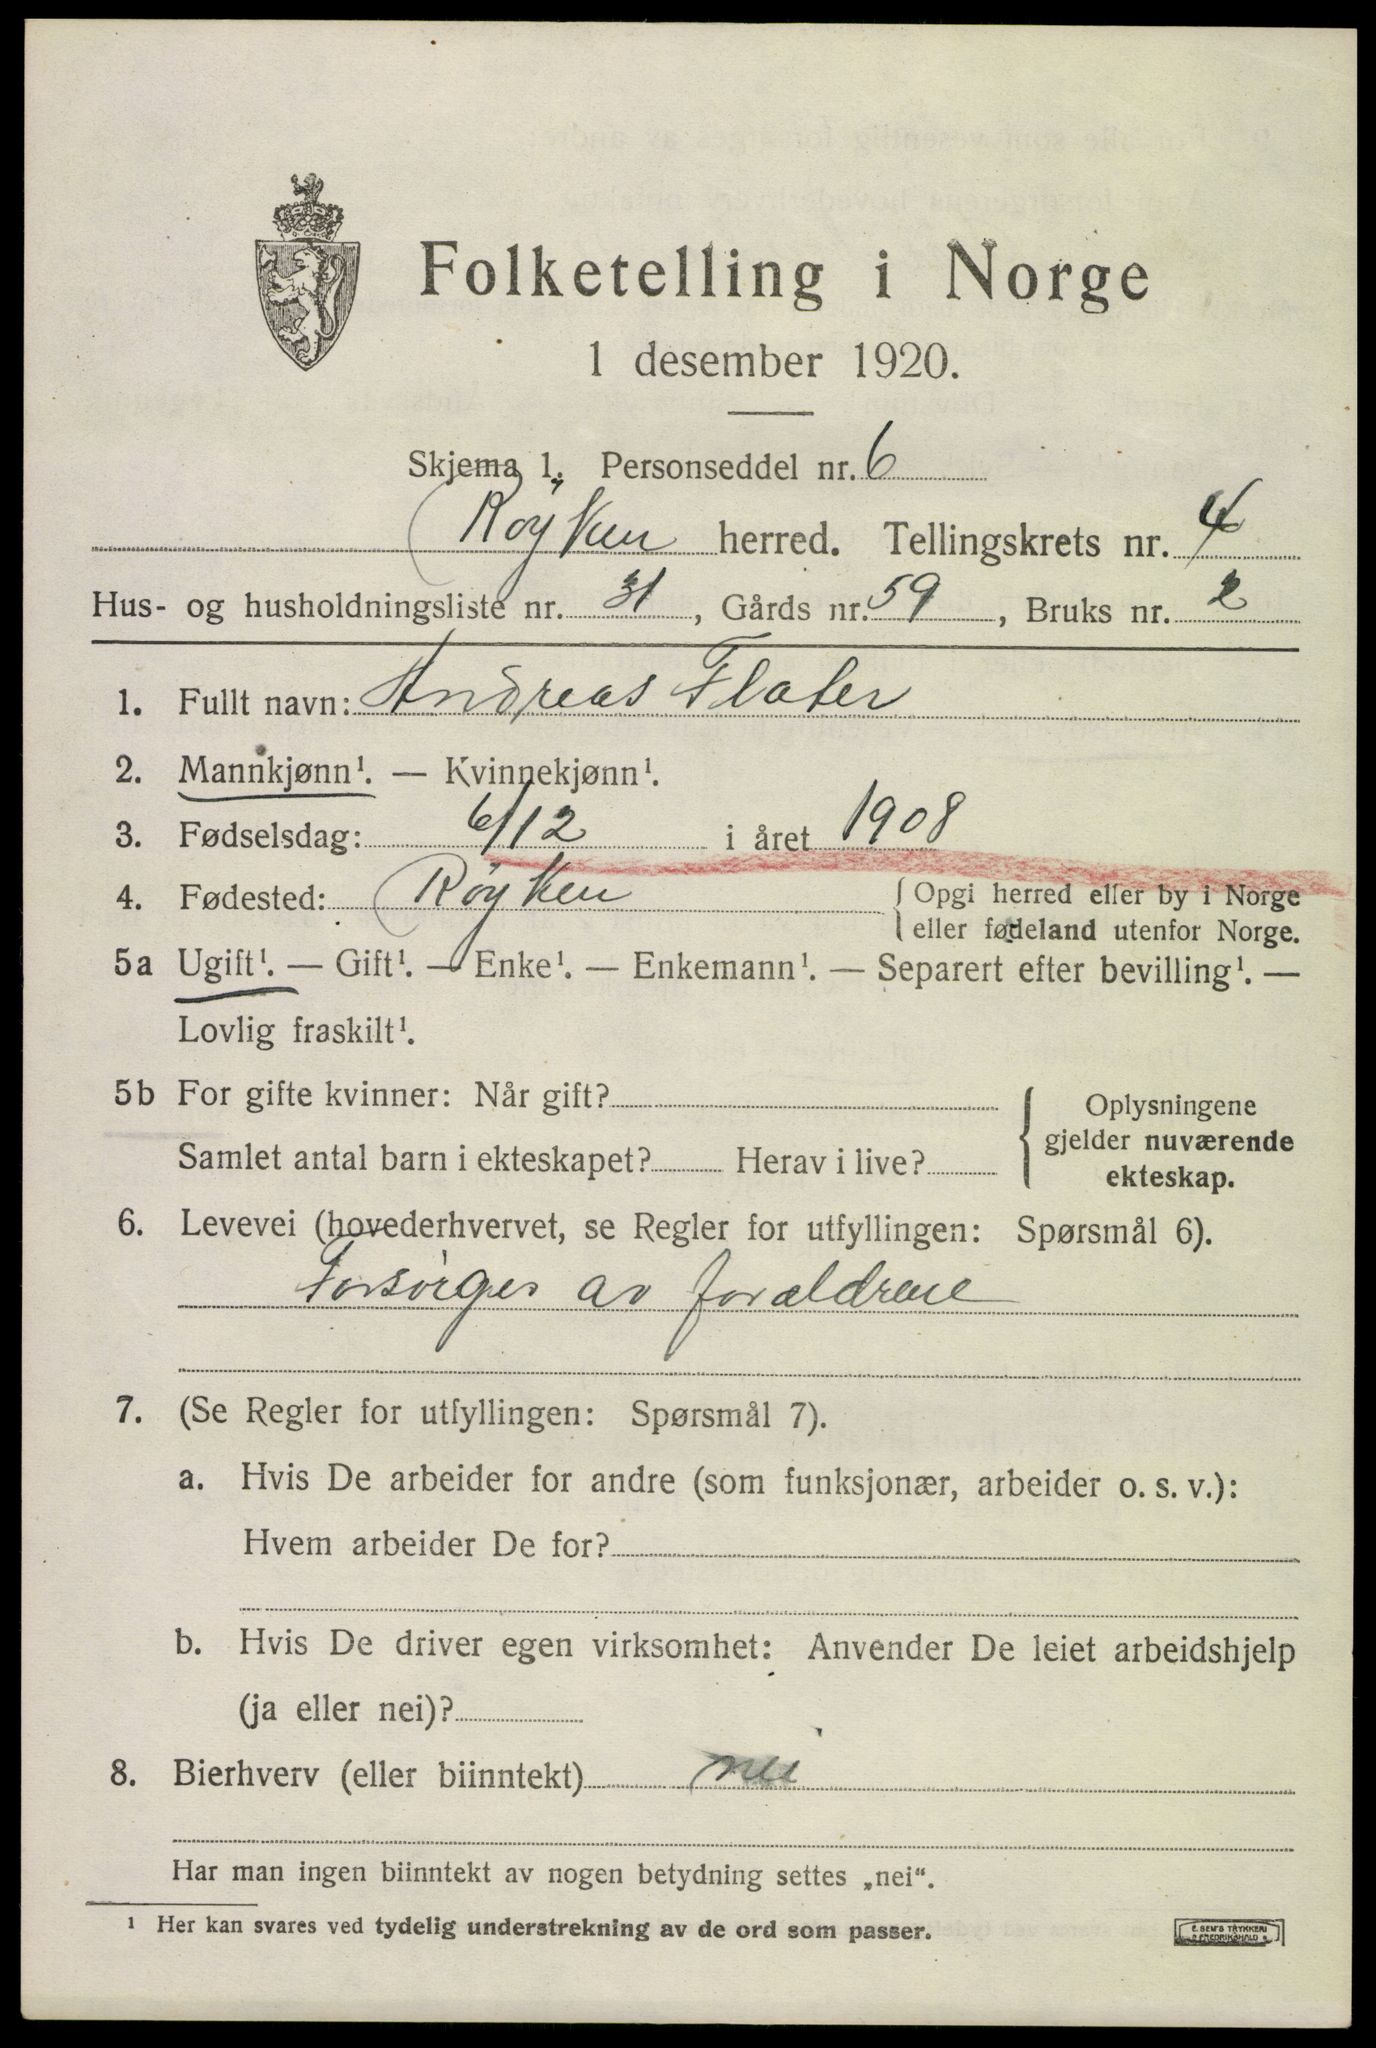 Folketelling i Norge
1 desember 1920.
Skjema 1. Personseddel nr. 6
Røyken herred. Tellingskrets nr. 4
Hus- og husholdningsliste nr. 31, Gårds nr. 59, Bruks nr. 2
1. Fullt navn: Andreas Flater
2. Mannkjønn¹. — Kvinnekjønn¹.
3. Fødselsdag: 6/12 i året 1908
4. Fødested: Røyken { Opgi herred eller by i Norge
eller fødeland utenfor Norge.
5a Ugift¹. — Gift¹. — Enke¹. — Enkemann¹. — Separert efter bevilling¹. —
Lovlig fraskilt¹.
5b For gifte kvinner: Når gift?
Samlet antal barn i ekteskapet? Herav i live?
{ Oplysningene
gjelder nuværende
ekteskap.
6. Levevei (hovederhvervet, se Regler for utfyllingen: Spørsmål 6).
Forsörges av forældrene
7. (Se Regler for utfyllingen: Spørsmål 7).
a. Hvis De arbeider for andre (som funksjonær, arbeider o. s. v.):
Hvem arbeider De for?
b. Hvis De driver egen virksomhet: Anvender De leiet arbeidshjelp
(ja eller nei)?
8. Bierhverv (eller biinntekt) nei
Har man ingen biinntekt av nogen betydning settes „nei“.
¹ Her kan svares ved tydelig understrekning av de ord som passer.
E. SEM'S TRYKKERI
FREDRIKSHALD